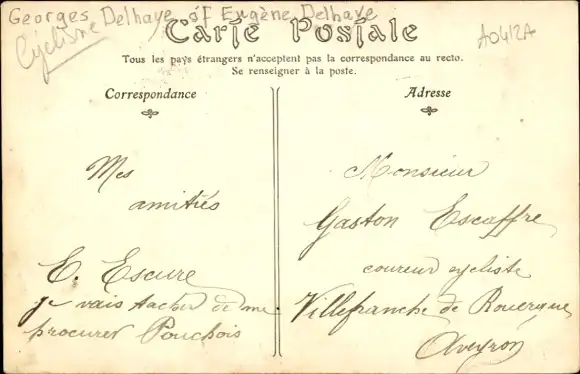 Georges Delhaye et Eugène Delhaye
Cyclisme
A0412A
Carte Postale
Tous les pays étrangers n'acceptent pas la correspondance au recto.
Se renseigner à la poste.
Correspondance
Mes
amitiés
E. Escure
je vais tacher de me
procurer Pouchois
Adresse
Monsieur
Gaston Escaffre
coureur cycliste
Villefranche de Rouergue
Aveyron